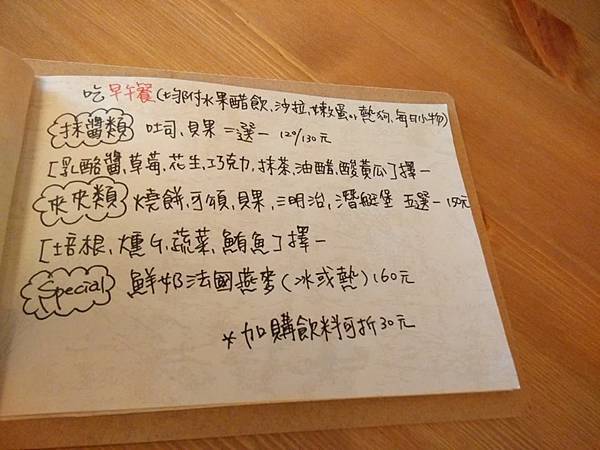 吃早午餐(均附水果醋飲、沙拉、嫩蛋、熱狗、每日小物)
抹醬類 吐司、貝果 二選一 120/130元
[乳酪醬,草莓、花生、巧克力、抹茶、油醋、酸黃瓜]擇一
夾夾類 燒餅、可頌、貝果、三明治、潛艇堡 五選一 150元
[培根、燻G、蔬菜、鮪魚]擇一
Special 鮮奶法國燕麥(冰或熱)160元
*加購飲料可折30元